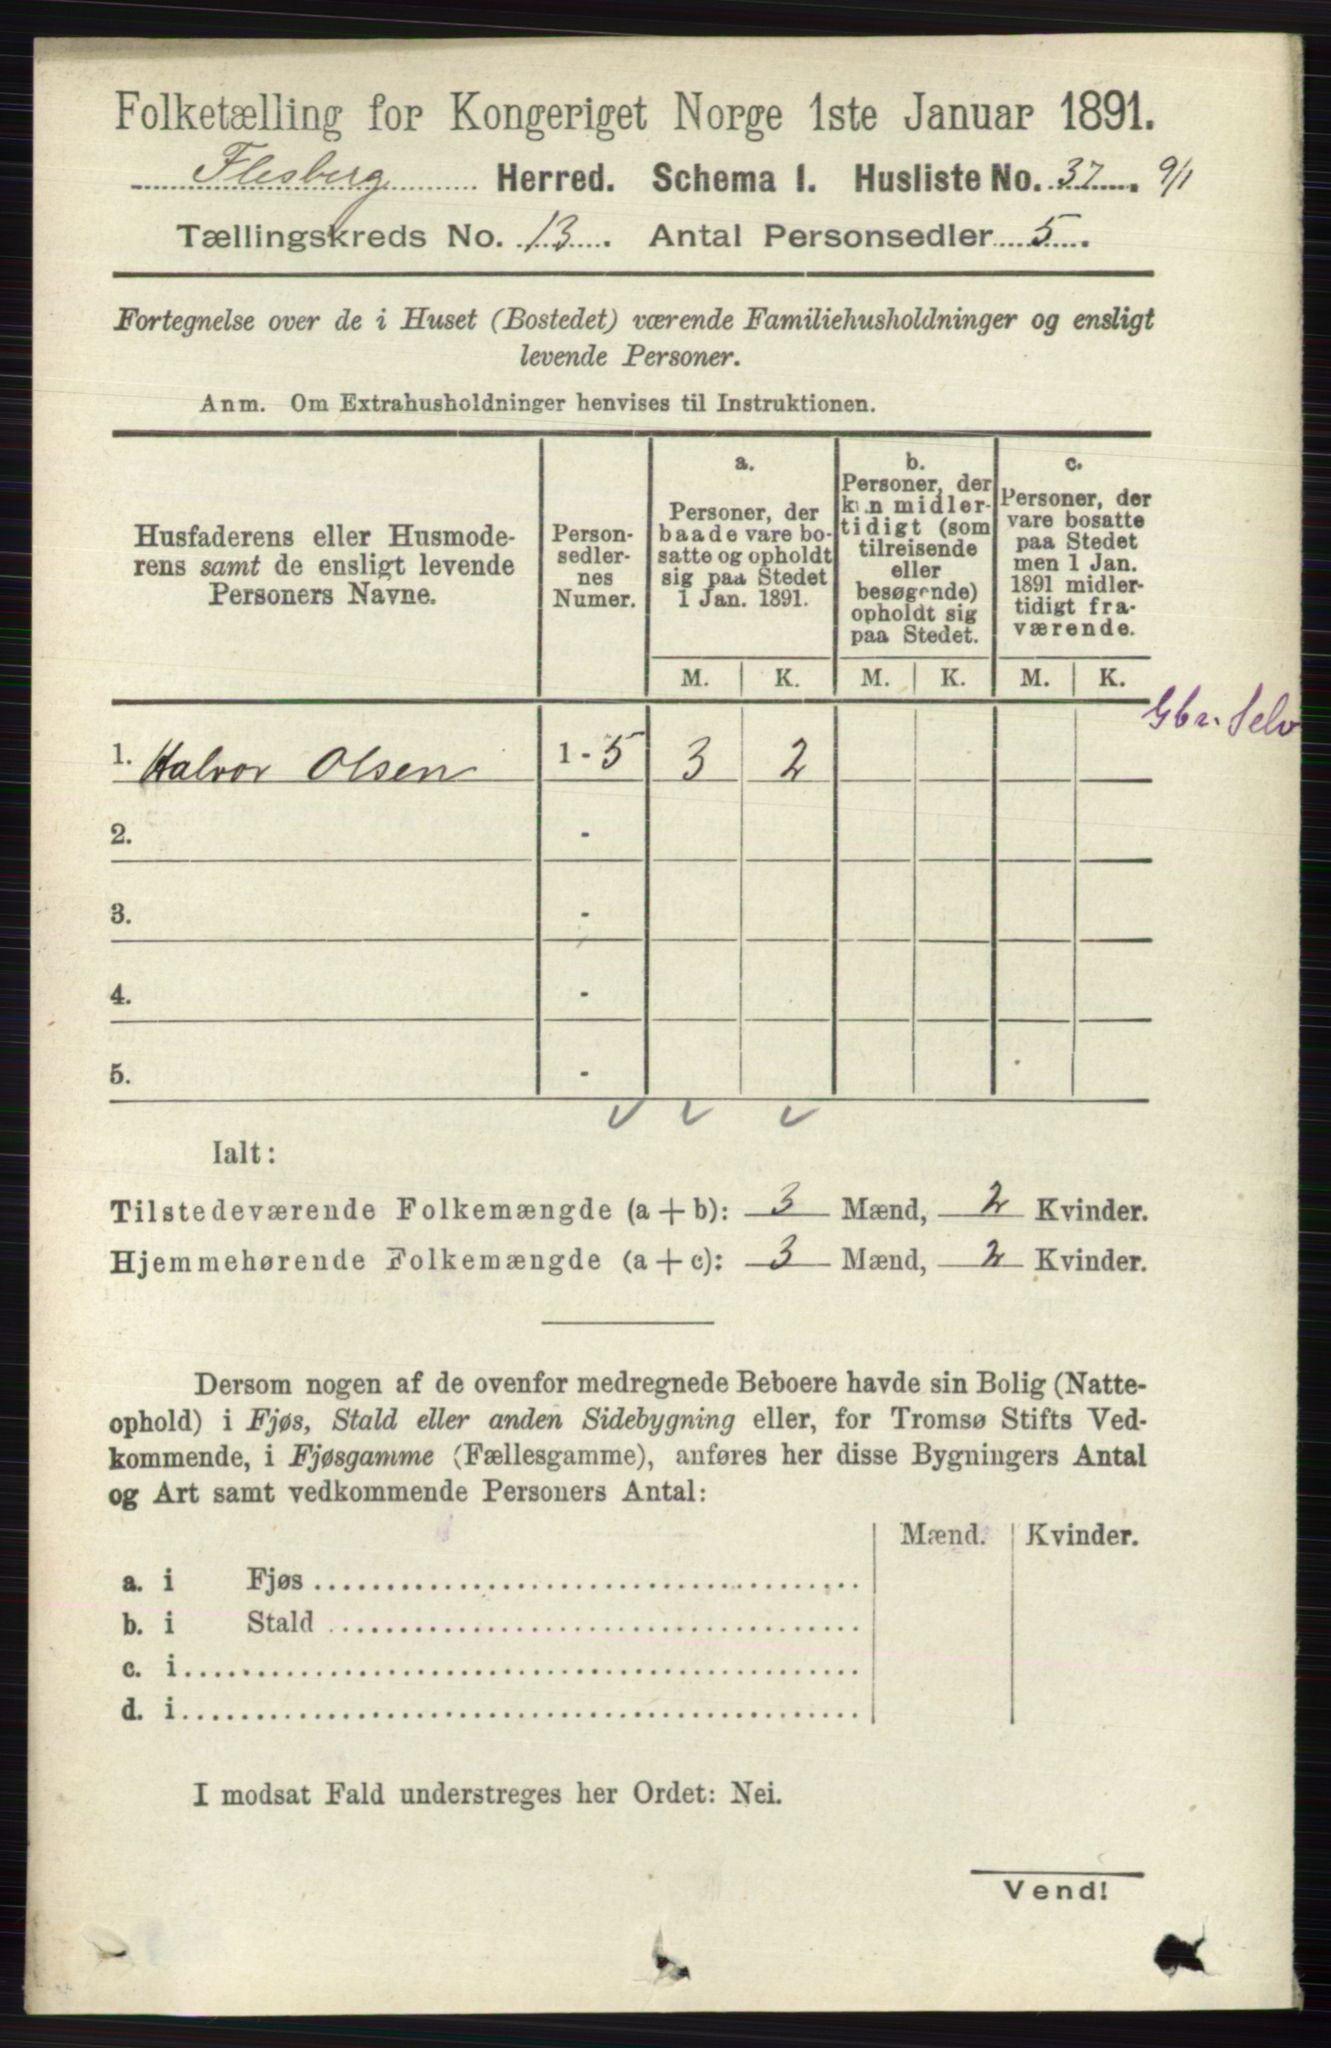 Folketælling for Kongeriget Norge 1ste Januar 1891.
Flesberg Herred. Schema I. Husliste No. 37. 9/1
Tællingskreds No. 13. Antal Personsedler 5.
Fortegnelse over de i Huset (Bostedet) værende Familiehusholdninger og ensligt
levende Personer.
Anm. Om Extrahusholdninger henvises til Instruktionen.
Husfaderens eller Husmode-
rens samt de ensligt levende
Personers Navne.
Person-
sedler-
nes
Numer.
a.
Personer, der
baade vare bo-
satte og opholdt
sig paa Stedet
1 Jan. 1891.
b.
Personer, der
kun midler-
tidigt (som
tilreisende
eller
besøgende)
opholdt sig
paa Stedet.
c.
Personer, der
vare bosatte
paa Stedet
men 1 Jan.
1891 midler-
tidigt fra-
værende.
M. K. M. K. M. K.
Gbr. Selv
1. Halvor Olsen 1 - 5 3 2
2. -
3. -
4. -
5. -
Ialt:
Tilstedeværende Folkemængde (a + b): 3 Mænd, 2 Kvinder.
Hjemmehørende Folkemængde (a + c): 3 Mænd, 2 Kvinder.
Dersom nogen af de ovenfor medregnede Beboere havde sin Bolig (Natte-
ophold) i Fjøs, Stald eller anden Sidebygning eller, for Tromsø Stifts Ved-
kommende, i Fjøsgamme (Fællesgamme), anføres her disse Bygningers Antal
og Art samt vedkommende Personers Antal:
Mænd. Kvinder.
a. i Fjøs
b. i Stald
c. i
d. i
I modsat Fald understreges her Ordet: Nei.
Vend!